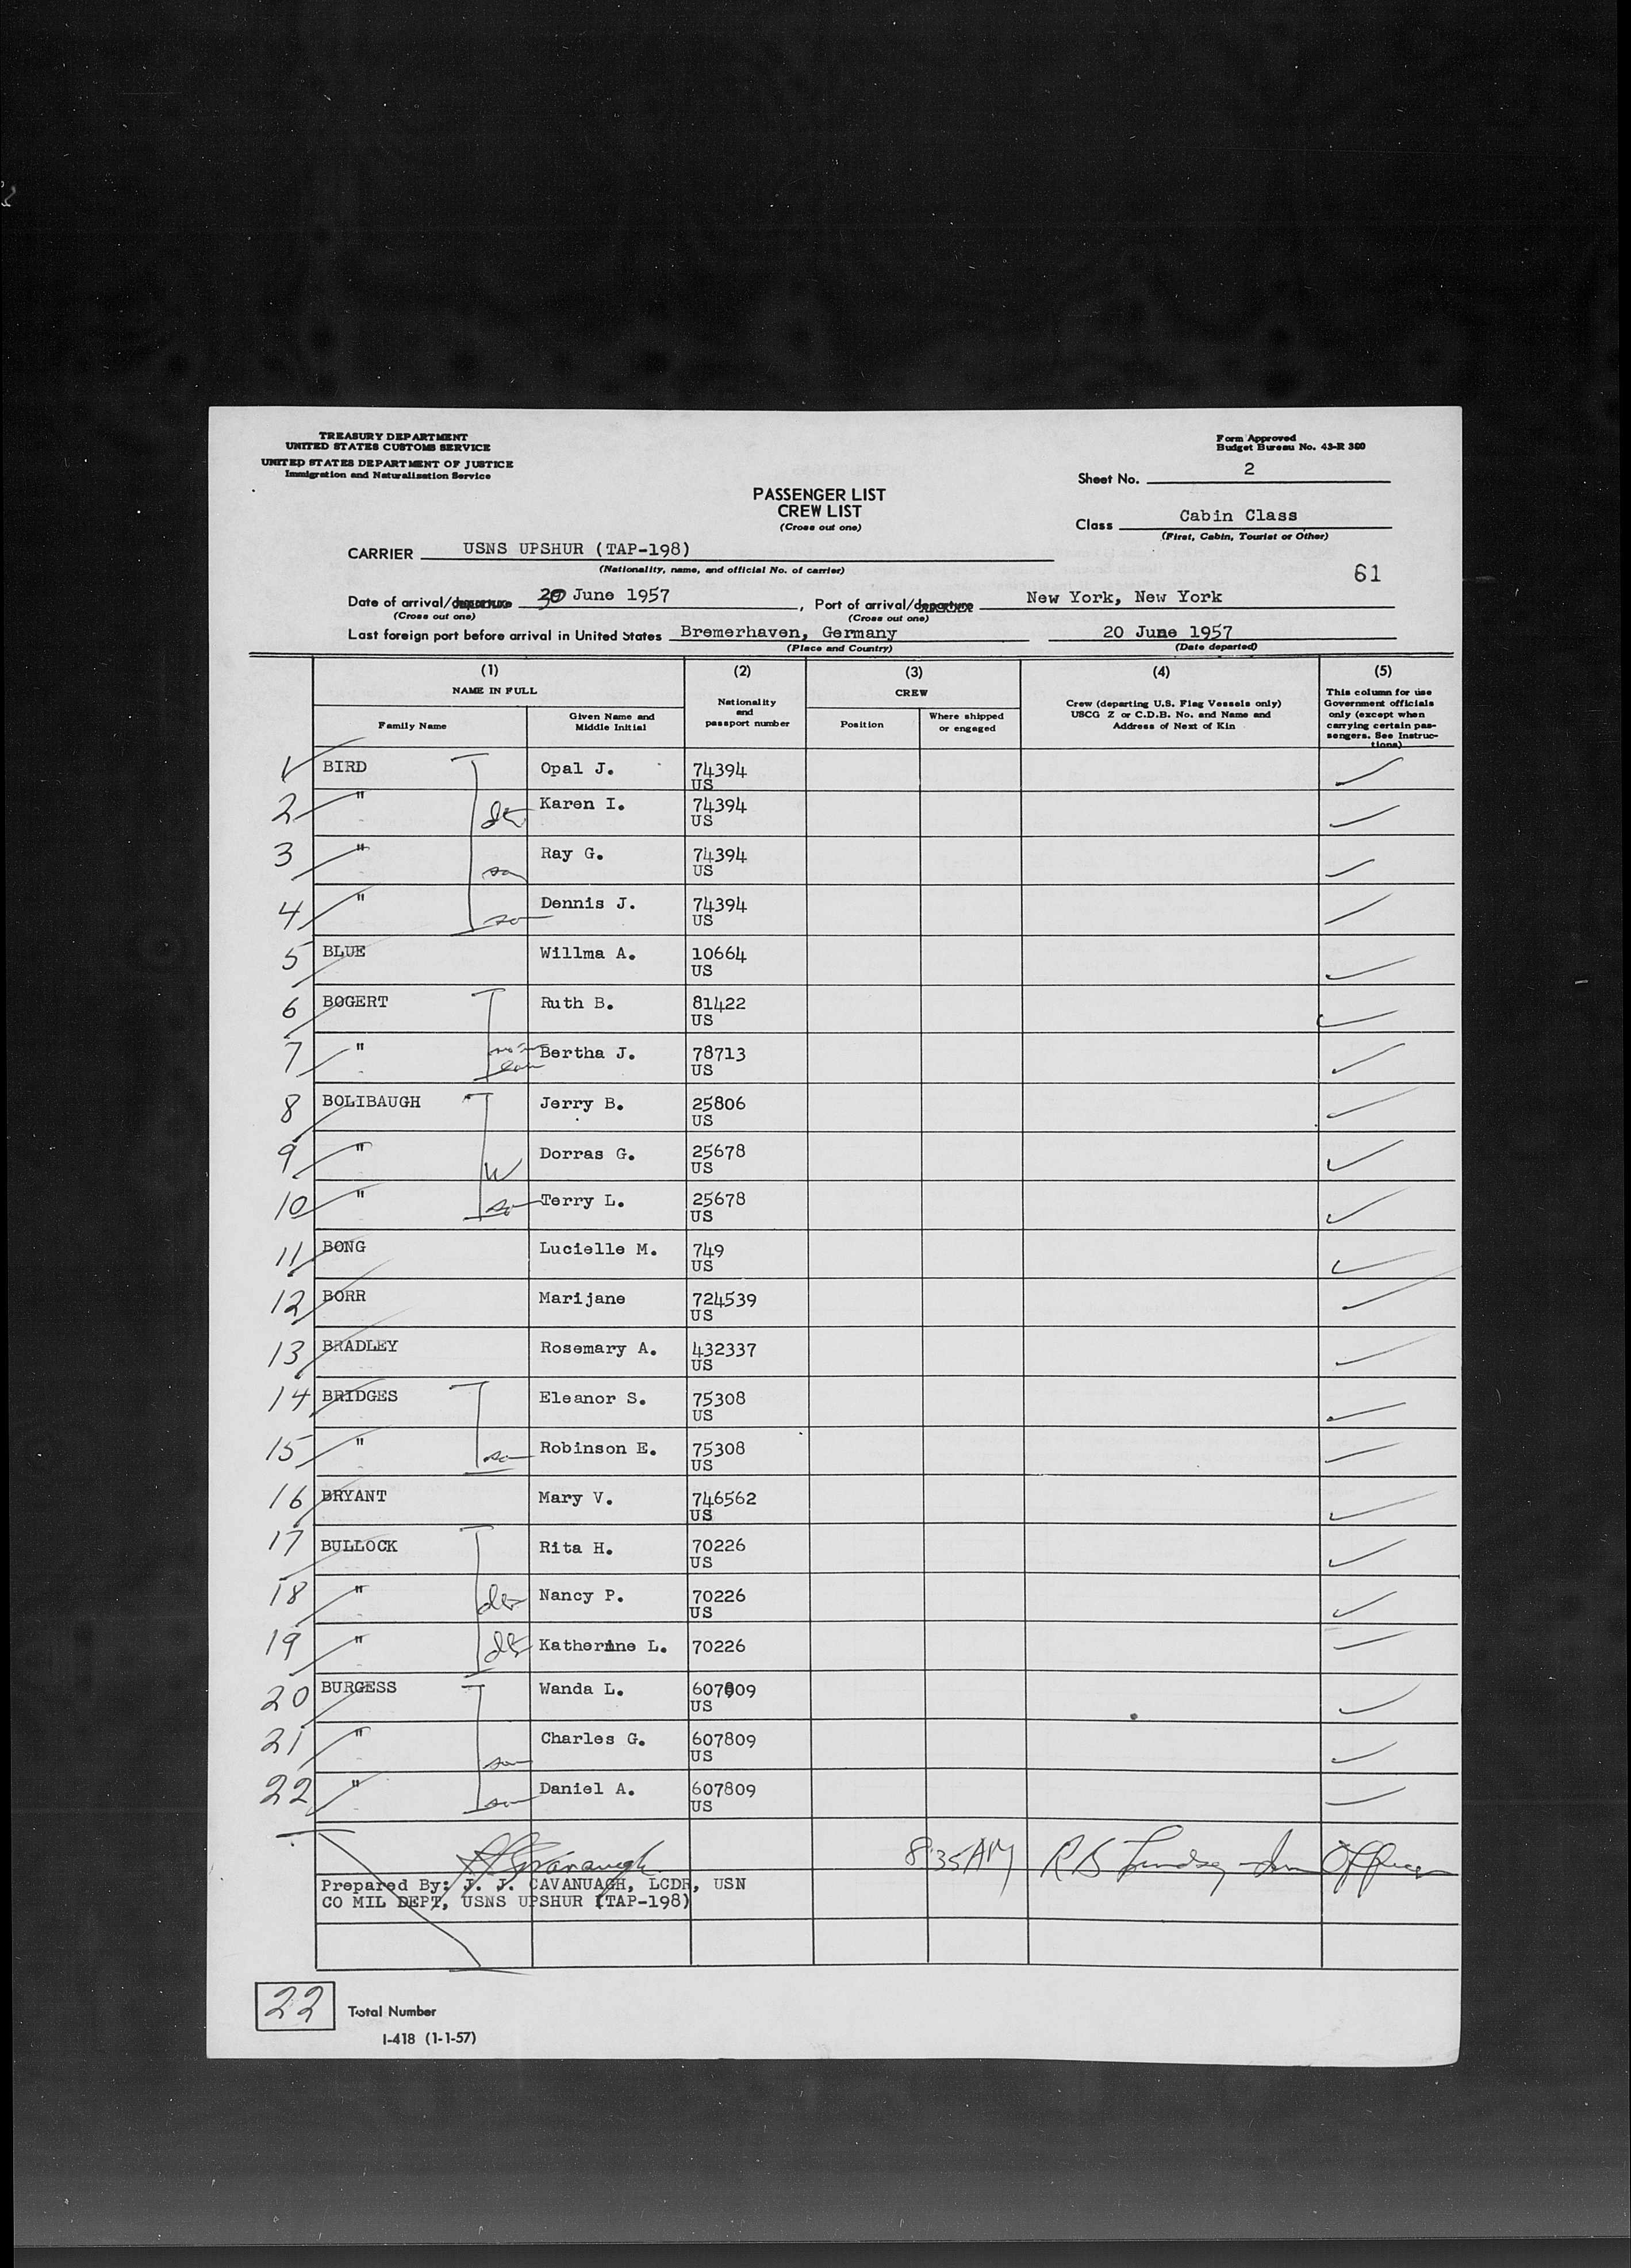 TREASURY DEPARTMENT
UNITED STATES CUSTOMS SERVICE
UNITED STATES DEPARTMENT OF JUSTICE
Immigration and Naturalization Service
Form Approved
Budget Bureau No. 43-R 380
Sheet No. 2
PASSENGER LIST
CREW LIST
(Cross out one)
Class Cabin Class
(First, Cabin, Tourist or Other)
CARRIER USNS UPSHUR (TAP-198)
(Nationality, name, and official No. of carrier)
61
Date of arrival/departure 30 June 1957, Port of arrival/departure New York, New York
(Cross out one) (Cross out one)
Last foreign port before arrival in United States Bremerhaven, Germany 20 June 1957
(Place and Country) (Date departed)
(1) (2) (3) (4) (5)
NAME IN FULL
Family Name
Given Name and Middle Initial
Nationality and passport number
CREW
Position
Where shipped or engaged
Crew (departing U.S. Flag Vessels only) USCG Z or C.D.B. No. and Name and Address of Next of Kin
This column for use Government officials only (except when carrying certain passengers. See Instructions)
1 BIRD Opal J. 74394 US
2 " dtr Karen I. 74394 US
3 " son Ray G. 74394 US
4 " son Dennis J. 74394 US
5 BLUE Willma A. 10664 US
6 BOGERT Ruth B. 81422 US
7 " Bertha J. 78713 US
8 BOLIBAUGH Jerry B. 25806 US
9 " W Dorras G. 25678 US
10 " son Terry L. 25678 US
11 BONG Lucielle M. 749 US
12 BORR Marijane 724539 US
13 BRADLEY Rosemary A. 432337 US
14 BRIDGES Eleanor S. 75308 US
15 " son Robinson E. 75308 US
16 BRYANT Mary V. 746562 US
17 BULLOCK Rita H. 70226 US
18 " dtr Nancy P. 70226 US
19 " dtr Katherine L. 70226
20 BURGESS Wanda L. 607809 US
21 " son Charles G. 607809 US
22 " son Daniel A. 607809 US
8:35 AM R B Lindsey Officer
Prepared By: J. J. CAVANUAGH, LCDR, USN
CO MIL DEPT, USNS UPSHUR (TAP-198)
22 Total Number
I-418 (1-1-57)